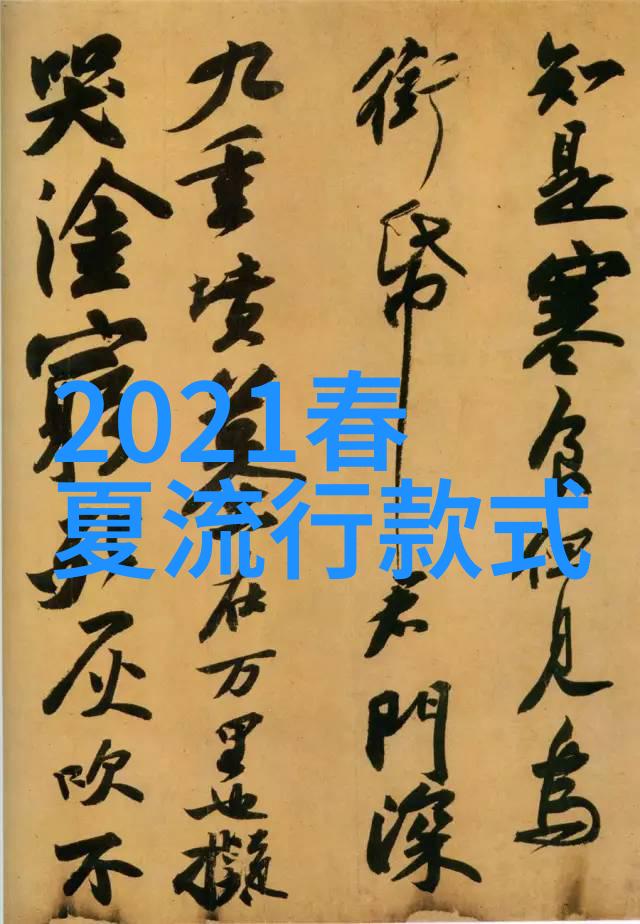 知是寒食但見烏
銜帋君門深
九重墳墓在万里也擬
哭塗窮死灰吹不
2021春
夏流行款式